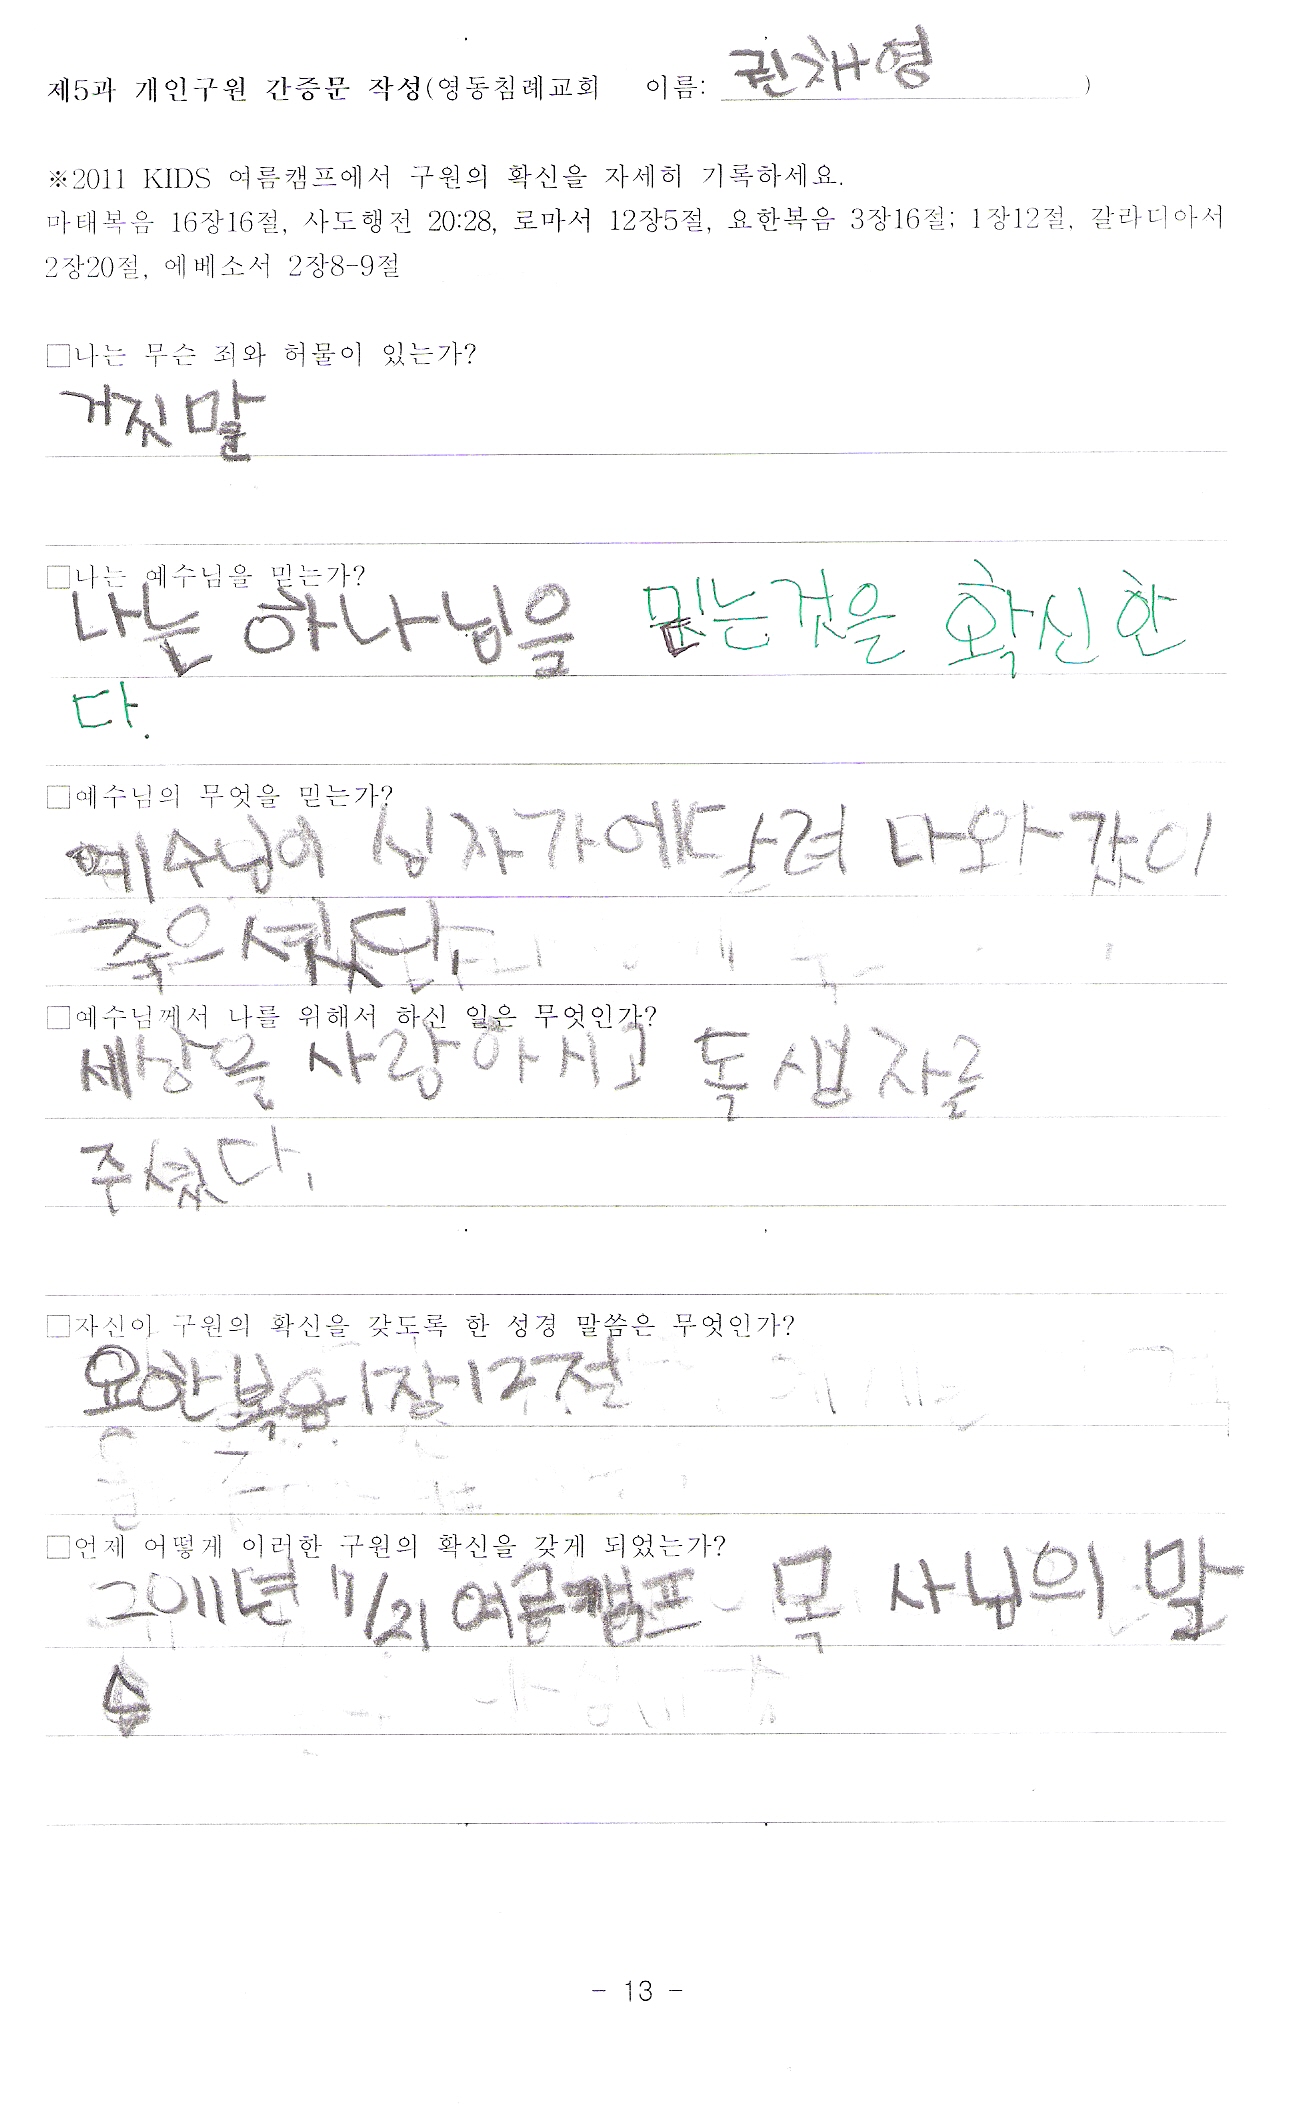 제5과 개인구원 간증문 작성(영동침례교회 이름: 권채영 )
※2011 KIDS 여름캠프에서 구원의 확신을 자세히 기록하세요.
마태복음 16장16절, 사도행전 20:28, 로마서 12장5절, 요한복음 3장16절; 1장12절, 갈라디아서
2장20절, 에베소서 2장8-9절
□나는 무슨 죄와 허물이 있는가?
거짓말
□나는 예수님을 믿는가?
나는 하나님을 믿는것을 확신한
다.
□예수님의 무엇을 믿는가?
예수님이 십자가에달려 나와 같이
죽으셨다.
□예수님께서 나를 위해서 하신 일은 무엇인가?
세상을 사랑하시고 독생자를
주셨다.
□자신이 구원의 확신을 갖도록 한 성경 말씀은 무엇인가?
요한복음1장12절
□언제 어떻게 이러한 구원의 확신을 갖게 되었는가?
2011년 7/21 여름캠프 목사님의 말
씀
- 13 -